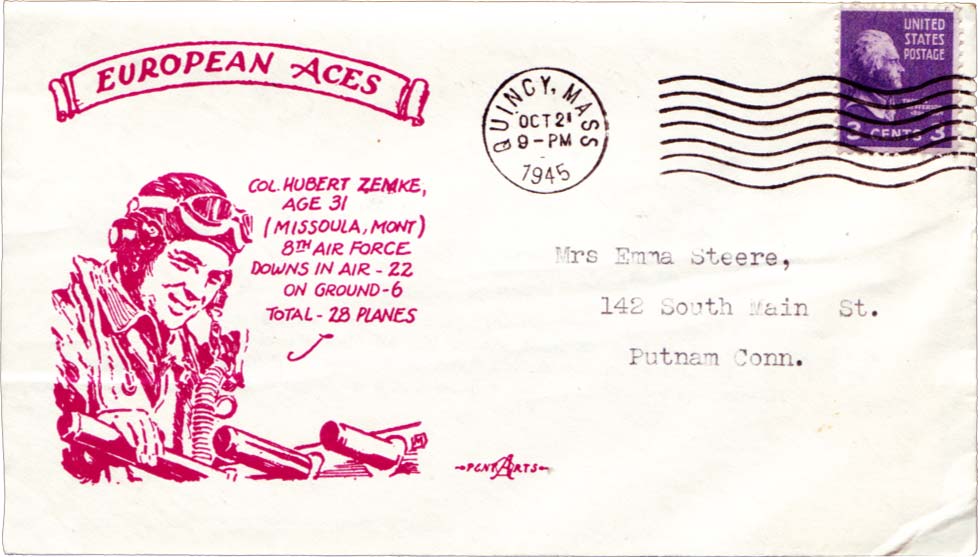 EUROPEAN ACES
COL. HUBERT ZEMKE,
AGE 31
(MISSOULA, MONT)
8TH AIR FORCE
DOWNS IN AIR - 22
ON GROUND - 6
TOTAL - 28 PLANES
PENT ARTS
QUINCY, MASS
OCT 21
9 - PM
1945
UNITED
STATES
POSTAGE
3 CENTS 3
Mrs Emma Steere,
142 South Main St.
Putnam Conn.